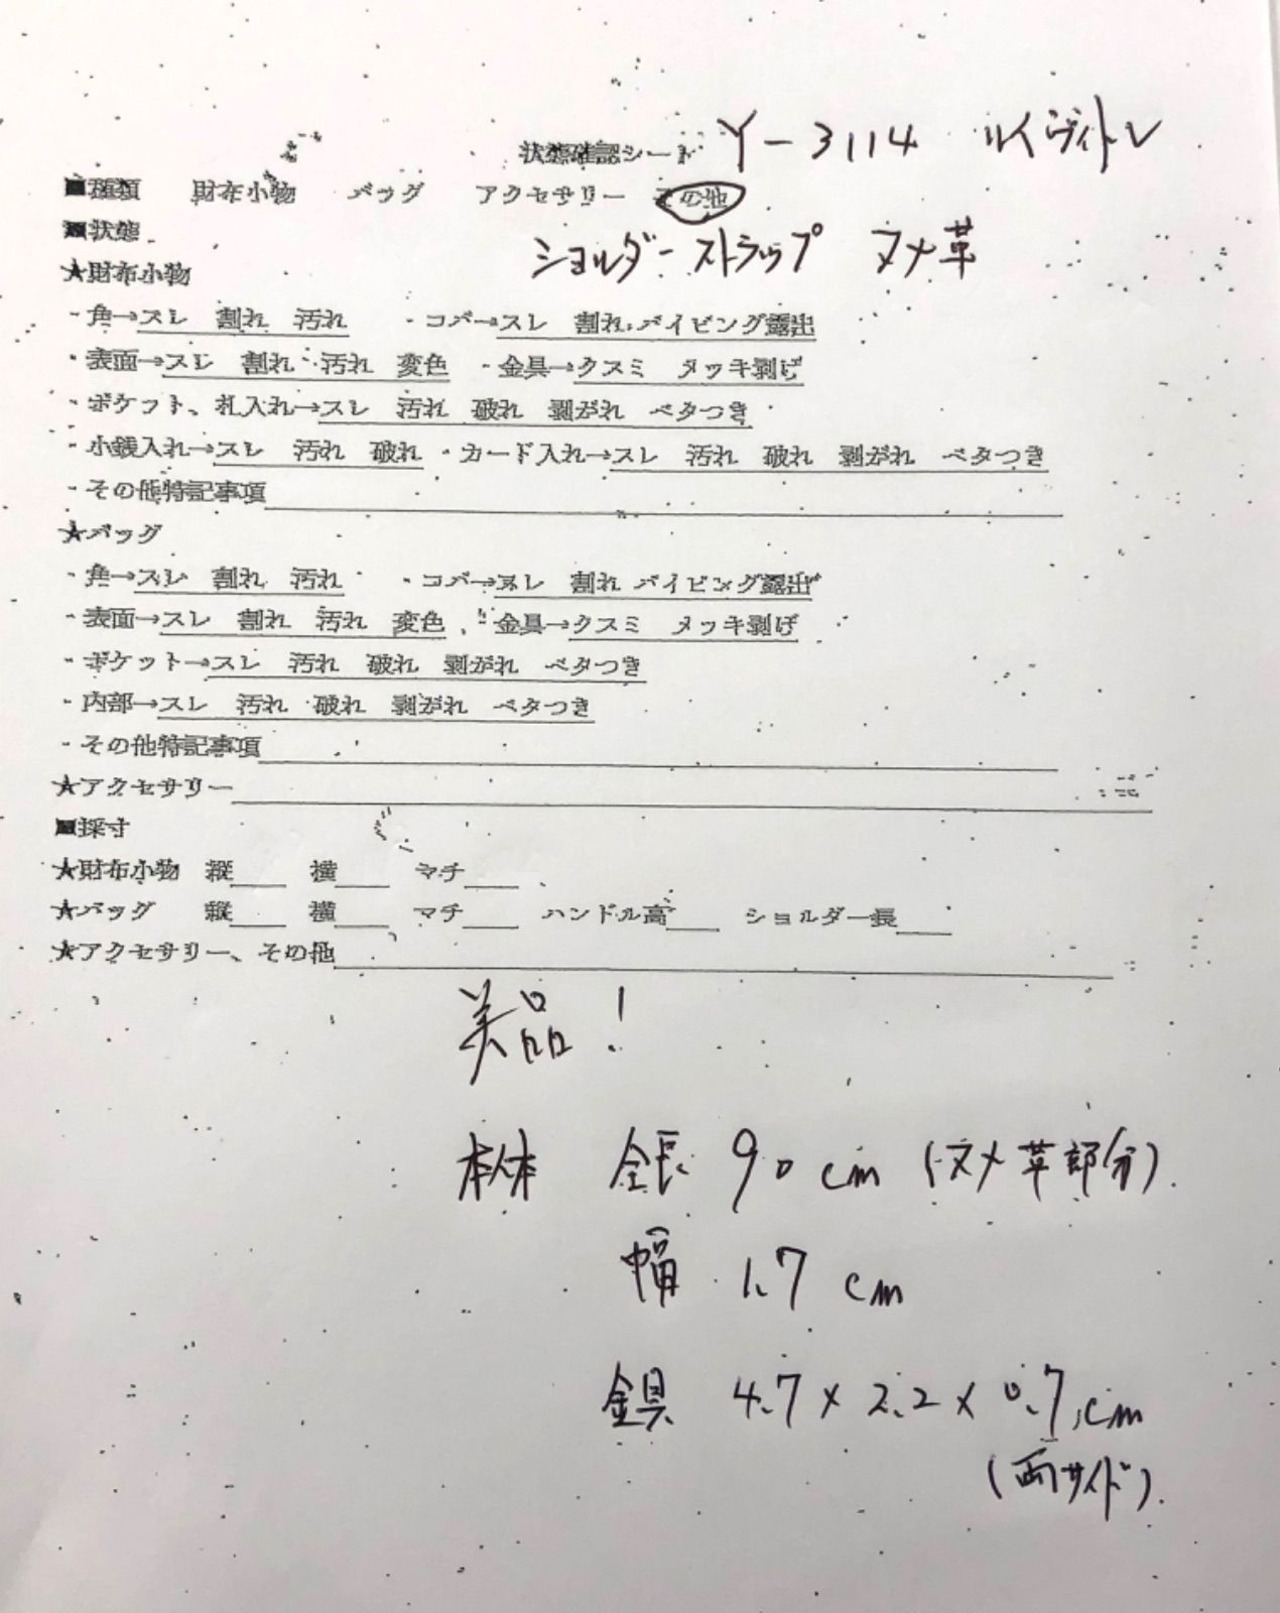 状態確認シート Y-3114 ルイヴィトン
■種類 財布小物 バッグ アクセサリー その他
■状態 ショルダーストラップ ヌメ革
★財布小物
・角→スレ 割れ 汚れ ・コバ→スレ 割れ パイピング露出
・表面→スレ 割れ 汚れ 変色 ・金具→クスミ メッキ剥げ
・ポケット、札入れ→スレ 汚れ 破れ 剥がれ ベタつき
・小銭入れ→スレ 汚れ 破れ ・カード入れ→スレ 汚れ 破れ 剥がれ ベタつき
・その他特記事項
★バッグ
・角→スレ 割れ 汚れ ・コバ→スレ 割れ パイピング露出
・表面→スレ 割れ 汚れ 変色 ・金具→クスミ メッキ剥げ
・ポケット→スレ 汚れ 破れ 剥がれ ベタつき
・内部→スレ 汚れ 破れ 剥がれ ベタつき
・その他特記事項
★アクセサリー
■採寸
★財布小物 縦 横 マチ
★バッグ 縦 横 マチ ハンドル高 ショルダー長
★アクセサリー、その他
美品!
本体 全長 90cm (ヌメ革部分)
幅 1.7cm
金具 4.7×2.2×0.7cm
(両サイド)